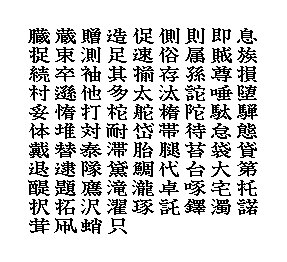 臓蔵贈造促側則即息
捉束測足速俗属賊族
続卒袖其揃存孫尊損
村遜他多太汰詑唾堕
妥惰打柁舵楕陀駄騨
体堆対耐岱帯待怠態
戴替泰滞胎腿苔袋貸
退逮隊黛鯛代台大第
醍題鷹滝瀧卓啄宅托
択拓沢濯琢託鐸濁諾
茸凧蛸只